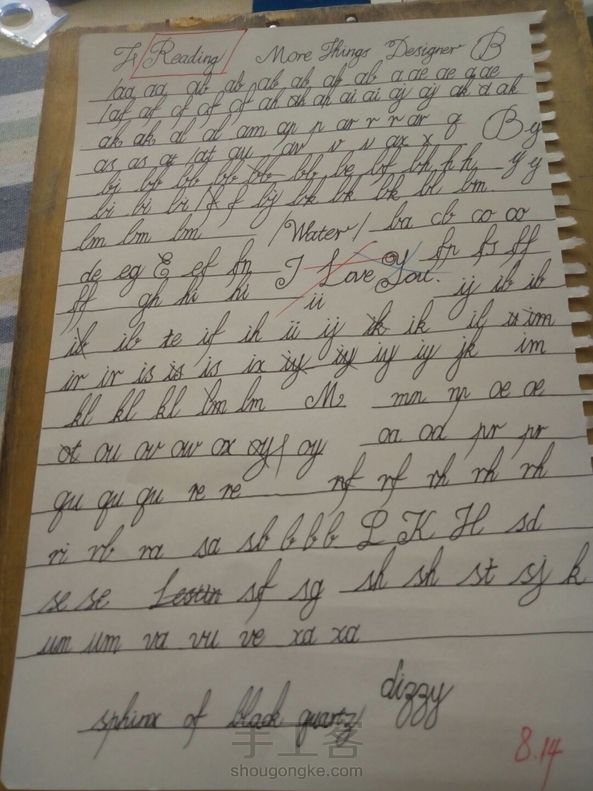 Reading More Things Designer B
aa aa ab ab ab ab ab ab a ae ae a ae
af af cf af af ah ah ah ai ai aj aj ak a ak
ak ak al al am ap p ar r r ar q B y
as as at at au av v v ax x
bj bb bb bb bb bb be bf bh h h y y
bi bi bi f f bj bk bk bk bl bm
lm lm lm /Water/ ba cb co co
de eg E ef fn I Love You. fp fs ff
ff gh hi hi ii ij ib ib
ib ib te if ih ii ij ik ik il is im
ir ir is is is ix iy iy iy iy jk im
kl kl kl lm lm M mn np oe oe
ot ou ov ow ox oy oy oa od pr pr
qu qu qu re re rf rf rh rh rh
ri rb ra sa sb b b b L K H sd
se se sf sg sh sh st sj k
um um va vu ve xa xa
dizzy
sphinx of black quartz
手工客
shougongke.com
8.14